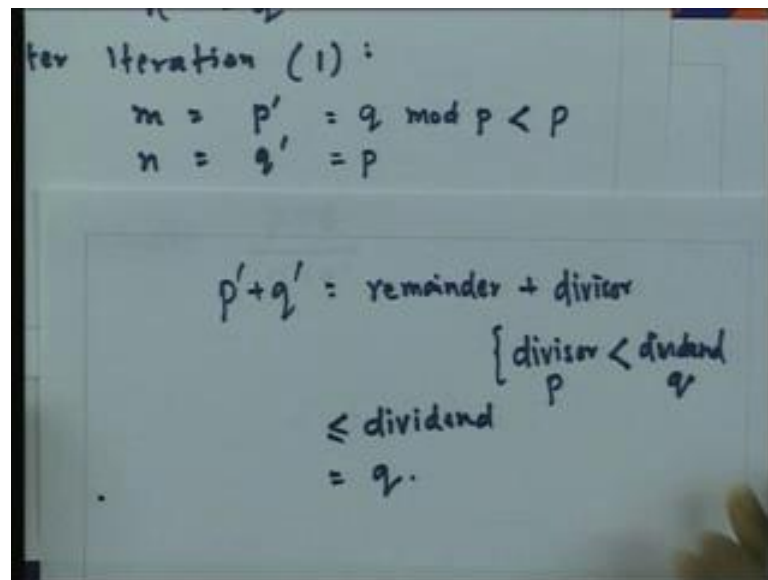 ter Iteration (1) :
m = p' = q mod p < p
n = q' = p
p'+q' = remainder + divisor
{ divisor < dividend
p q
≤ dividend
= q.